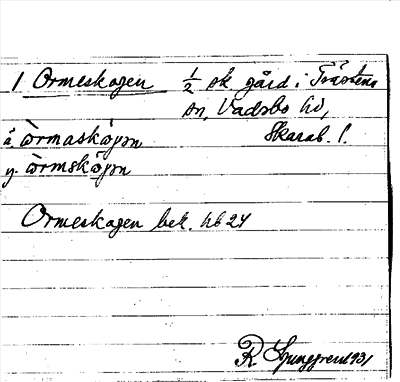 1 Ormeskogen ½ sk gård i Trästena
sn, Vadsbo hd,
Skarab. l.
ä òrmaskópn
y. òrmskópn
Ormeskogen bet. hb 24
R Ljunggren 1931